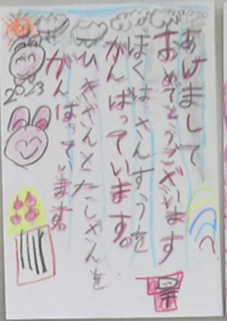 あけまして
おめでとうございます
ぼくはさんすうを
がんばっています。
ひきざんとたしざんを
がんばってます。
2023